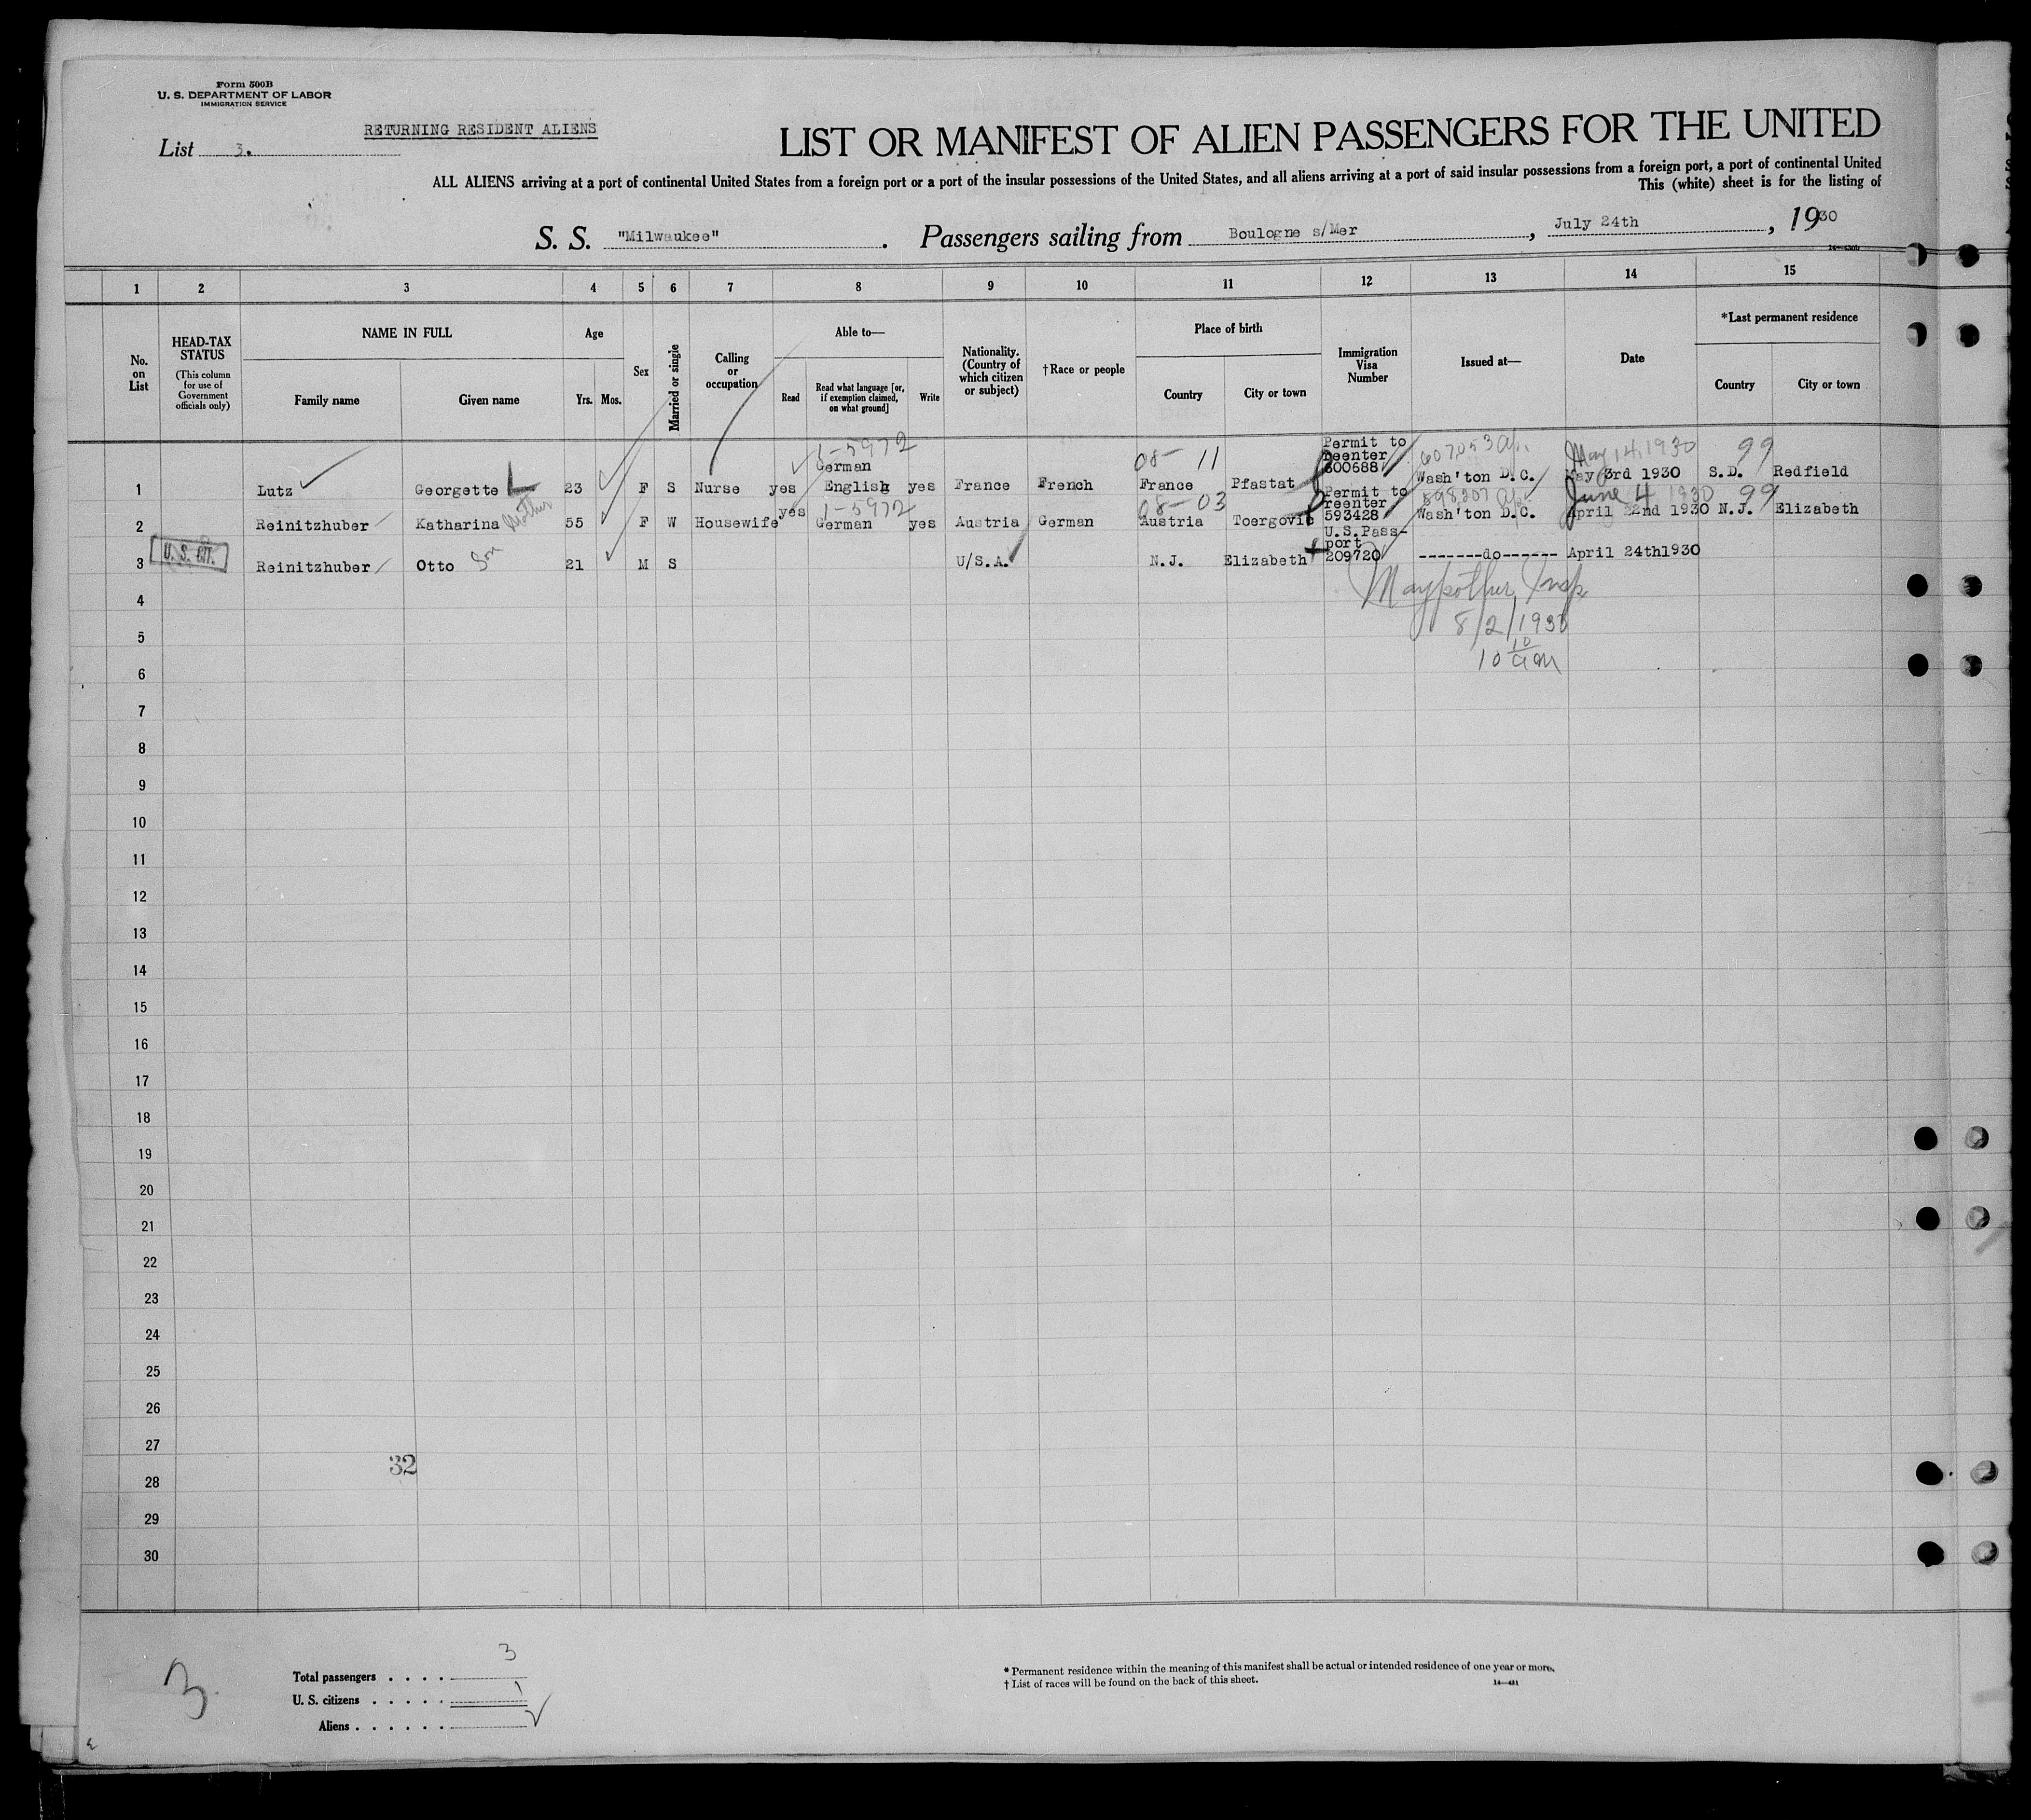 Form 500B
U. S. DEPARTMENT OF LABOR
IMMIGRATION SERVICE
RETURNING RESIDENT ALIENS
List 3.
LIST OR MANIFEST OF ALIEN PASSENGERS FOR THE UNITED
ALL ALIENS arriving at a port of continental United States from a foreign port or a port of the insular possessions of the United States, and all aliens arriving at a port of said insular possessions from a foreign port, a port of continental United
This (white) sheet is for the listing of
S. S. "Milwaukee" . Passengers sailing from Boulogne s/Mer , July 24th , 1930
1 2 3 4 5 6 7 8 9 10 11 12 13 14 15
No. on List
HEAD-TAX STATUS (This column for use of Government officials only)
NAME IN FULL
Family name Given name
Age
Yrs. Mos.
Sex
Married or single
Calling or occupation
Able to—
Read Read what language [or, if exemption claimed, on what ground] Write
Nationality. (Country of which citizen or subject)
†Race or people
Place of birth
Country City or town
Immigration Visa Number
Issued at—
Date
*Last permanent residence
Country City or town
1-5972 08-11 May 14, 1930 99
1 Lutz Georgette L 23 F S Nurse yes German English yes France French France Pfastat Permit to Reenter 600688 Wash'ton D.C. May 3rd 1930 S.D. Redfield
1-5972 08-03 June 4 1930 99
2 Reinitzhuber Katharina Mother 55 F W Housewife yes German yes Austria German Austria Toergovic Permit to reenter 593428 Wash'ton D.C. April 22nd 1930 N.J. Elizabeth
3 U. S. CIT. Reinitzhuber Otto Son 21 M S U/S.A. N.J. Elizabeth U.S.Pass-port 209720 -------do------ April 24th1930
4
Insp
5
8/2/1930
6
10 10 am
7
8
9
10
11
12
13
14
15
16
17
18
19
20
21
22
23
24
25
26
27
32
28
29
30
3
Total passengers . . . . 3
U. S. citizens . . . . . 1
Aliens . . . . . .
* Permanent residence within the meaning of this manifest shall be actual or intended residence of one year or more.
† List of races will be found on the back of this sheet.
14—431